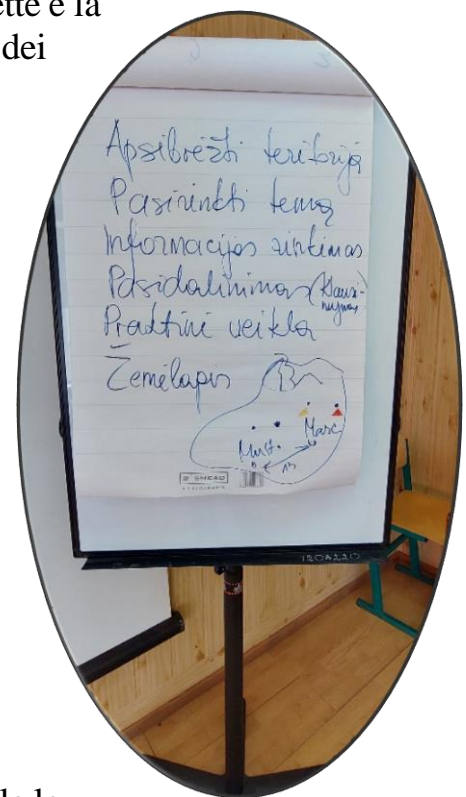 ette e la
dei
Apsibrėžti teritoriją
Pasirinkti temą
Informacijos rinkimas
Pasidalinimas (Klausi-
nėjimas
Praktinė veikla
Žemėlapis
Marc.
Must.
SMEAD